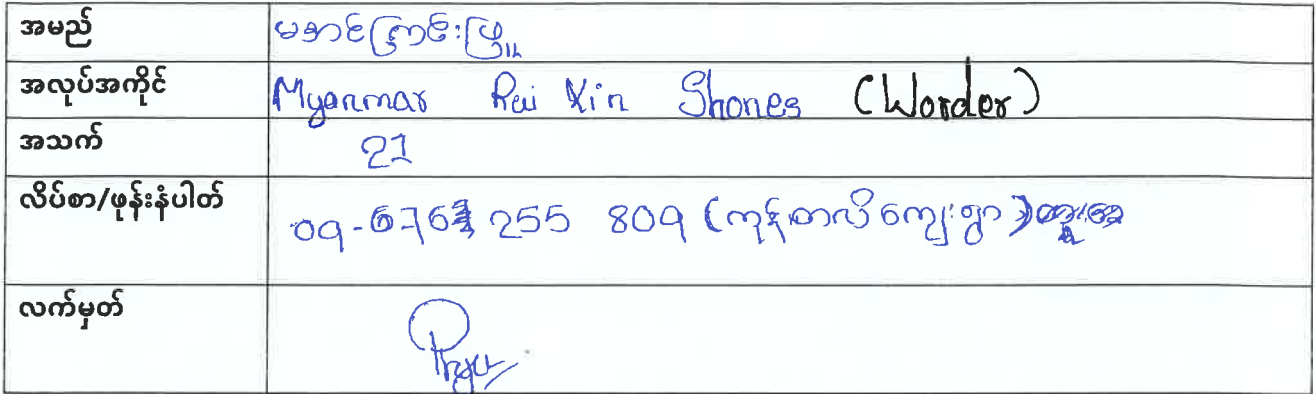 အမည် မအောင်ကြင်းဖြူ
အလုပ်အကိုင် Myanmar Rui Xin Shones (Worder)
အသက် 21
လိပ်စာ/ဖုန်းနံပါတ် 09- 255 809 (ကုန်စာလိကျေးရွာ)
လက်မှတ် Phyu